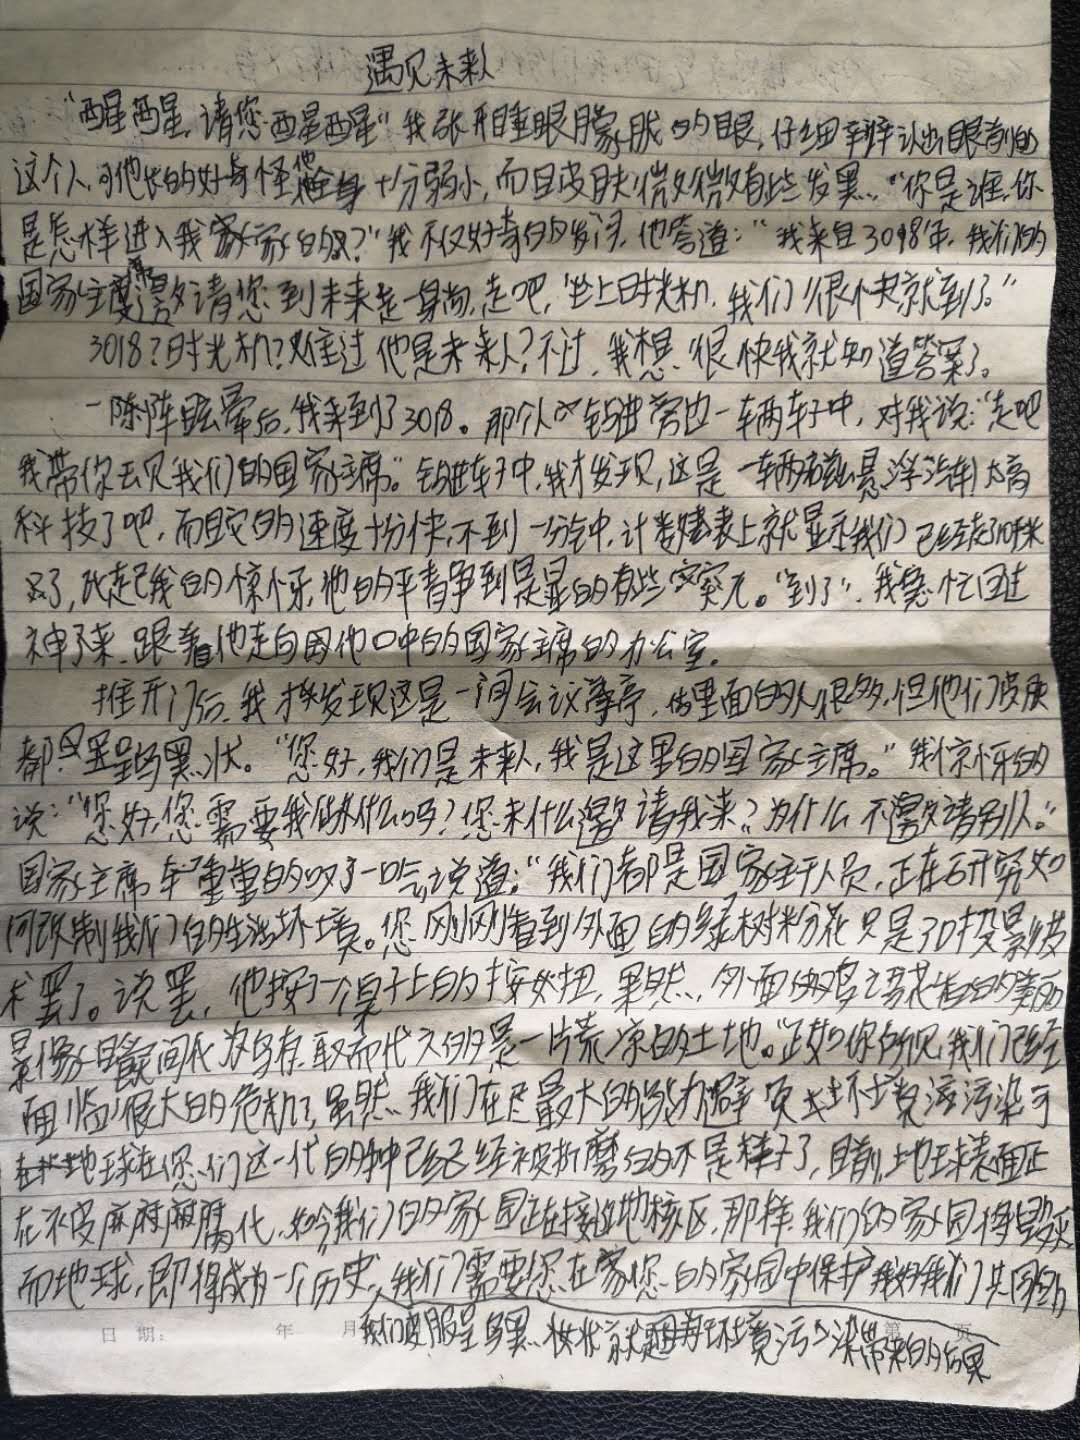 遇见未来人
“醒醒,请您醒醒”我张开睡眼朦胧的眼,仔细辨认出眼前的
这个人,他长的好奇怪,他全身十分弱小,而且皮肤微微有些发黑,“你是谁,你
是怎样进入我家的?”我不仅好奇的发问,他答道:“我来自3018年,我们的
国家主席邀请您到未来走一趟,走吧,坐上时光机,我们很快就到了。”
3018?时光机?难过他是未来人?不过,我想,很快我就知道答案了。
一阵阵眩晕后,我来到了3018。那个人钻进旁边一辆车子中,对我说:“走吧
我带你去见我们的国家主席。”钻进车子中,我才发现,这是一辆磁悬浮汽车!太高
科技了吧,而且它的速度十分快,不到一分钟,计数表上就显示我们已经走了
了,比起我的惊讶,他的平静到是显的有些突兀。“到了”,我急忙回过
神了来,跟着他走向因他口中的国家主席的办公室。
推开门后,我才发现这是一间会议厅,里面的人很多,但他们皮肤
都呈乌黑状。“您好,我们是未来人,我是这里的国家主席。”我惊讶的
说:“您好,您需要我做什么吗?您未什么邀请我来?为什么不邀请别人。”
国家主席重重的叹了一口气说道:“我们都是国家主干人员,正在研究如
何改制我们的生活环境。您刚刚看到外面的绿树粉花只是3D投影技
术罢了。说罢,他按了个桌子上的按扭,果然,外面的鸟语花香的美丽
景像瞬间化为乌有,取而代之的是一片荒凉的土地。“正如你所见,我们已经
面临很大的危机了,虽然,我们在尽最大的能力避免环境污染,可
地球在您们这一代的时已经被折磨的不是样子了,目前,地球表面正
在被腐化,如今我们的家园正在接近地核区,那样,我们的家园将毁灭
而地球,即将成为一个历史,我们需要您在您的家园中保护好我们共同的
日期: 年 月 我们皮肤呈乌黑状就是环境污染带来的后果 第 页